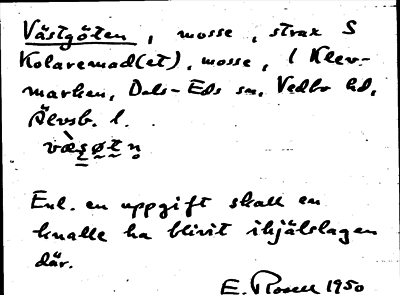 Västgöten, mosse, strax S
Kolaremad(et), mosse, i Klev-
marken, Dals-Eds sn, Vedbo hd,
Älvsb. l.
Enl. en uppgift skall en
knalle ha blivit ihjälslagen
där.
E. Rosell 1950